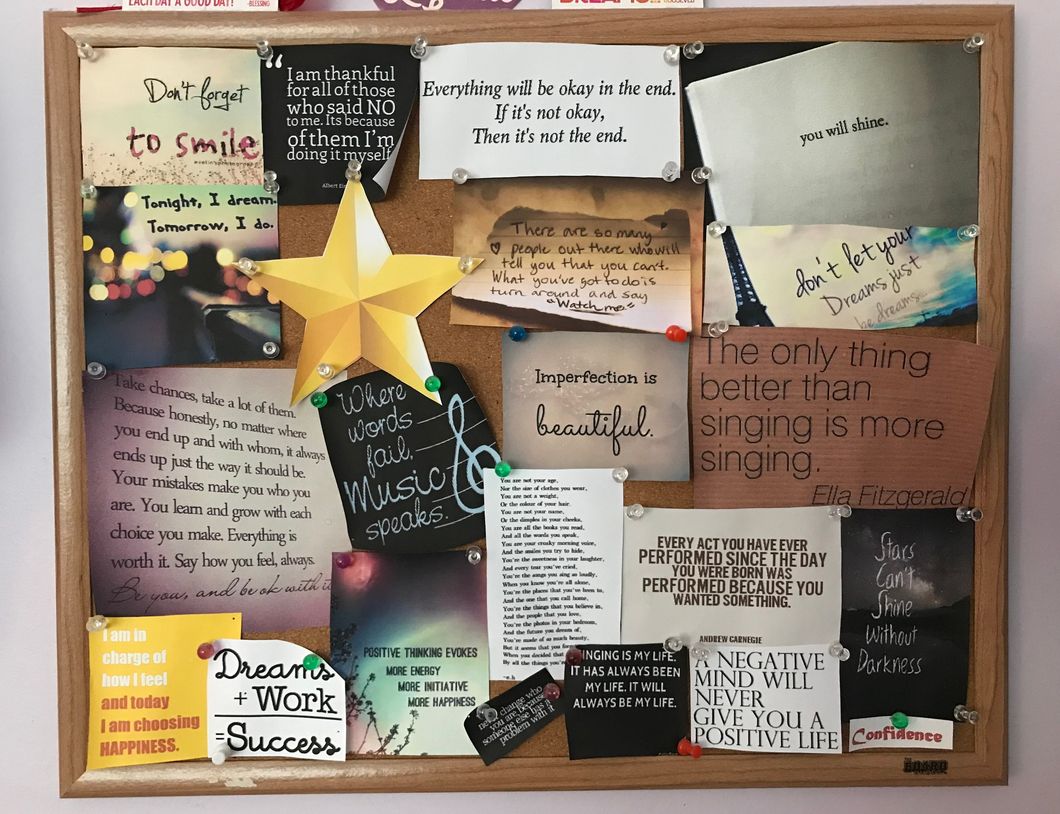 EACH DAY A GOOD DAY!
-BLESSING
Don't forget
to smile
“
I am thankful
for all of those
who said NO
to me. Its because
of them I'm
doing it myself
Albert
Everything will be okay in the end.
If it's not okay,
Then it's not the end.
you will shine.
Tonight, I dream.
Tomorrow, I do.
There are so many
people out there who will
tell you that you can't.
What you've got to do is
turn around and say
"Watch me."
don't let your
Dreams just
be dreams
Take chances, take a lot of them.
Because honestly, no matter where
you end up and with whom, it always
ends up just the way it should be.
Your mistakes make you who you
are. You learn and grow with each
choice you make. Everything is
worth it. Say how you feel, always.
Be you, and be ok with it
Where
words
fail.
Music
speaks.
Imperfection is
beautiful.
The only thing
better than
singing is more
singing.
Ella Fitzgerald
You are not your age,
Nor the size of clothes you wear,
You are not a weight,
Or the colour of your hair.
You are not your name,
Or the dimples in your cheeks,
You are all the books you read,
And all the words you speak,
You are your croaky morning voice,
And the smiles you try to hide,
You're the sweetness in your laughter,
And every tear you've cried,
You're the songs you sing so loudly,
When you know you're all alone,
You're the places that you've been to,
And the one that you call home,
You're the things that you believe in,
And the people that you love,
You're the photos in your bedroom,
And the future you dream of,
You're made of so much beauty,
But it seems that you
When you decided that
By all the things you're
-e.h
EVERY ACT YOU HAVE EVER
PERFORMED SINCE THE DAY
YOU WERE BORN WAS
PERFORMED BECAUSE YOU
WANTED SOMETHING.
ANDREW CARNEGIE
Stars
Can't
Shine
Without
Darkness
I am in
charge of
how I feel
and today
I am choosing
HAPPINESS.
Dreams
+ Work
= Success
POSITIVE THINKING EVOKES
MORE ENERGY
MORE INITIATIVE
MORE HAPPINESS
never change who
you are because
someone else has a
problem with it
SINGING IS MY LIFE.
IT HAS ALWAYS BEEN
MY LIFE. IT WILL
ALWAYS BE MY LIFE.
A NEGATIVE
MIND WILL
NEVER
GIVE YOU A
POSITIVE LIFE
Confidence
BOARD